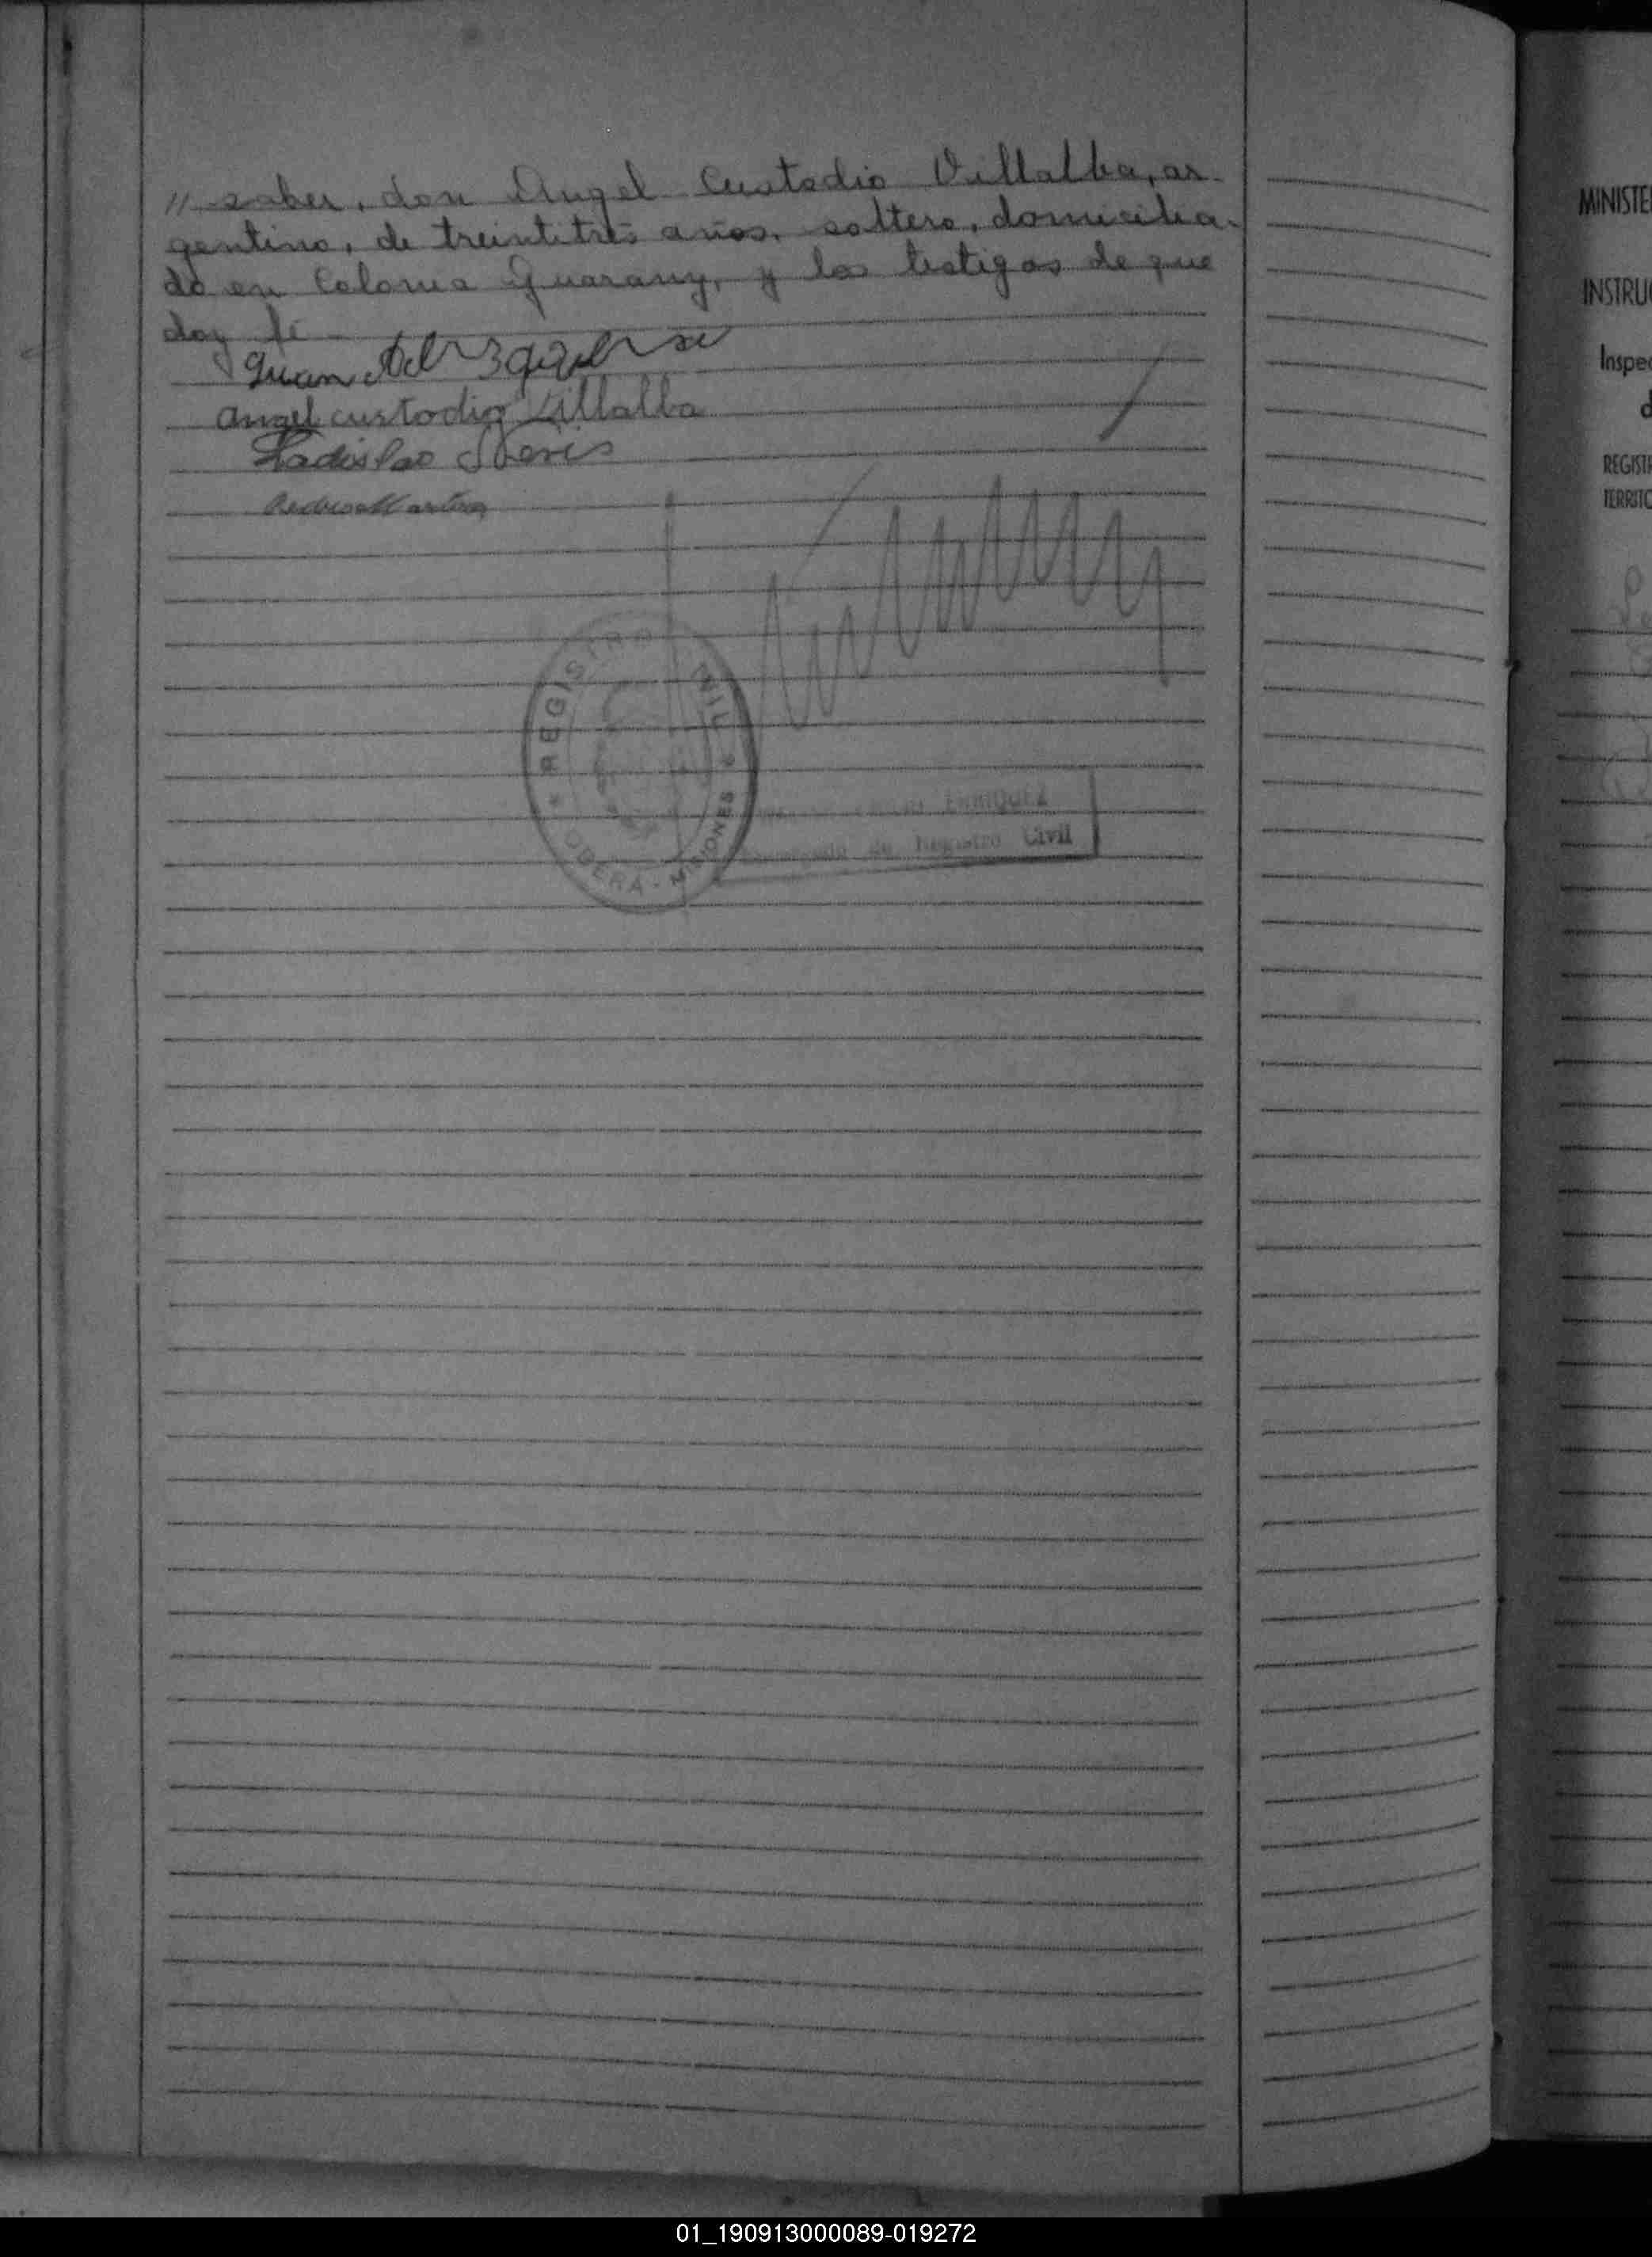 // saber, don Angel Custodio Villalba, ar-
gentino, de treintitrés años, soltero, domicilia-
do en Colonia Guarany, y los testigos de que
doy fé
Juan
angel custodio Villalba
Ladislao
REGISTRO CIVIL
OBERÁ - MISIONES
ENRIQUEZ
Encargado de Registro Civil
MINISTE
INSTRU
Inspe
d
REGIST
TERRITO
01_190913000089-019272